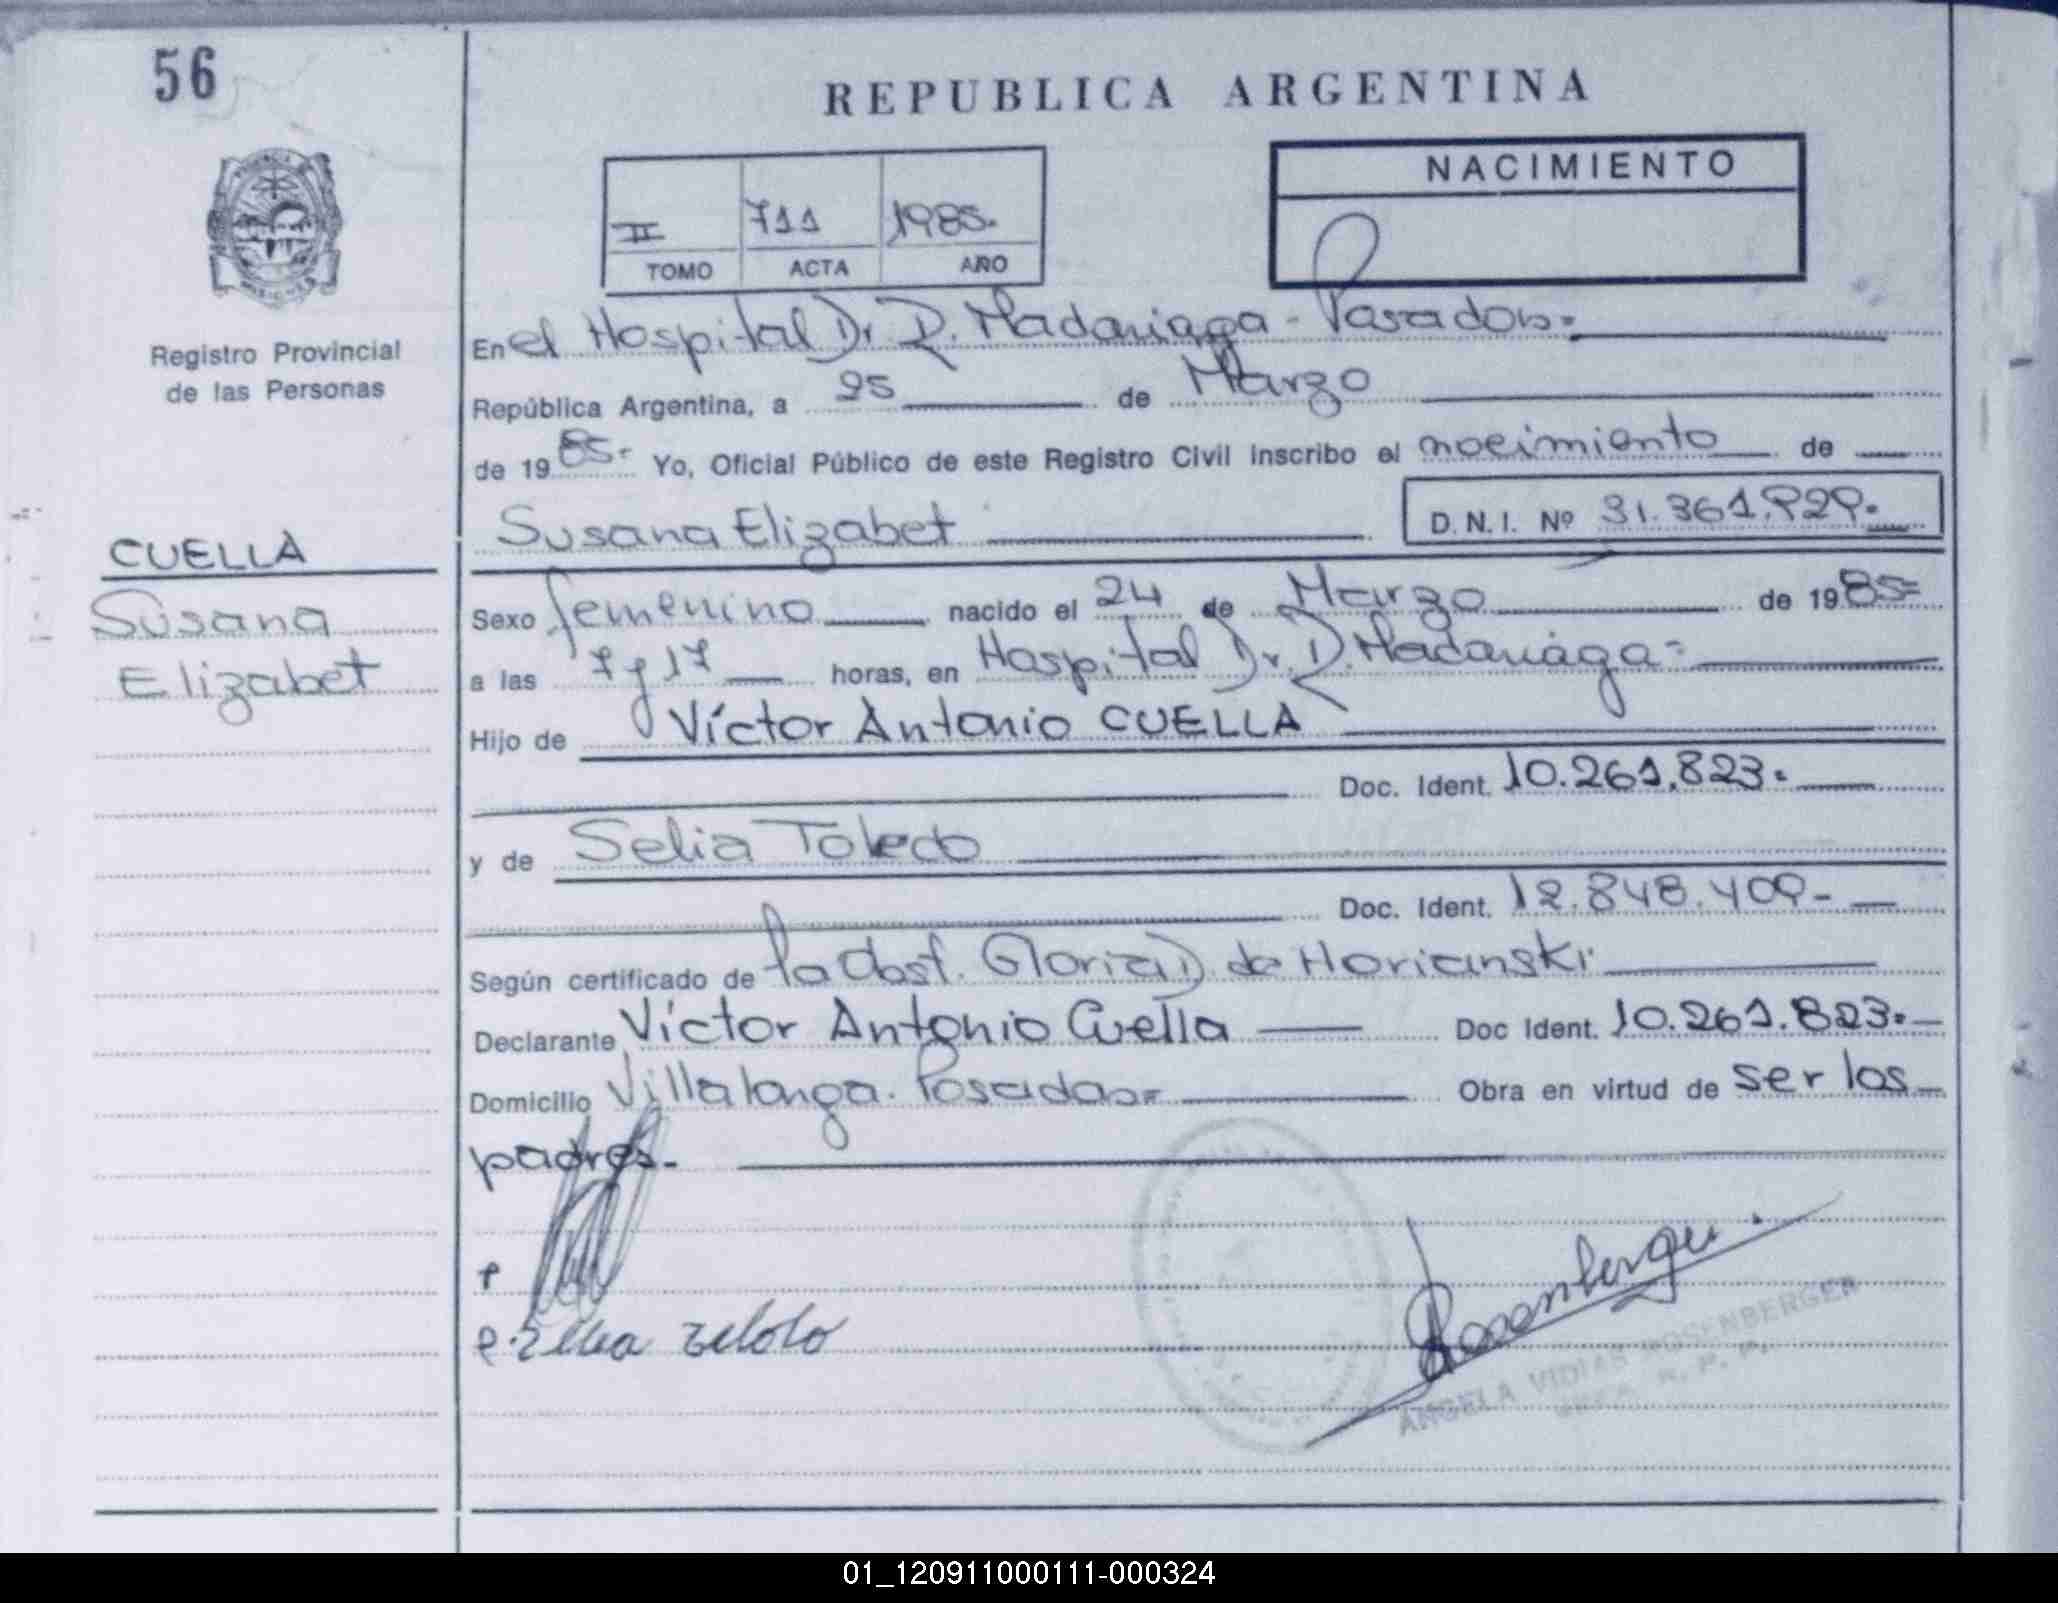 56
REPUBLICA ARGENTINA
NACIMIENTO
II 711 1985.
TOMO ACTA AÑO
Registro Provincial
de las Personas
En el Hospital Dr R. Madariaga - Posadas.
República Argentina, a 25 de Marzo
de 1985.- Yo, Oficial Público de este Registro Civil inscribo el nacimiento de
Susana Elizabet D.N.I. Nº 31.361.929.
CUELLA
Susana
Elizabet
Sexo femenino nacido el 24 de Marzo de 1985=
a las 7 y 17 horas, en Hospital Dr. R. Madariaga=
Hijo de Víctor Antonio CUELLA
Doc. Ident. 10.261.823.
y de Selia Toledo
Doc. Ident. 12.848.409-
Según certificado de la Obst. Gloria D de Horianski
Declarante Víctor Antonio Cuella Doc Ident. 10.261.823.-
Domicilio Villalonga. Posadas= Obra en virtud de ser los
padres.-
Rosenberger
ANGELA VIDIAS ROSENBERGER
01_120911000111-000324